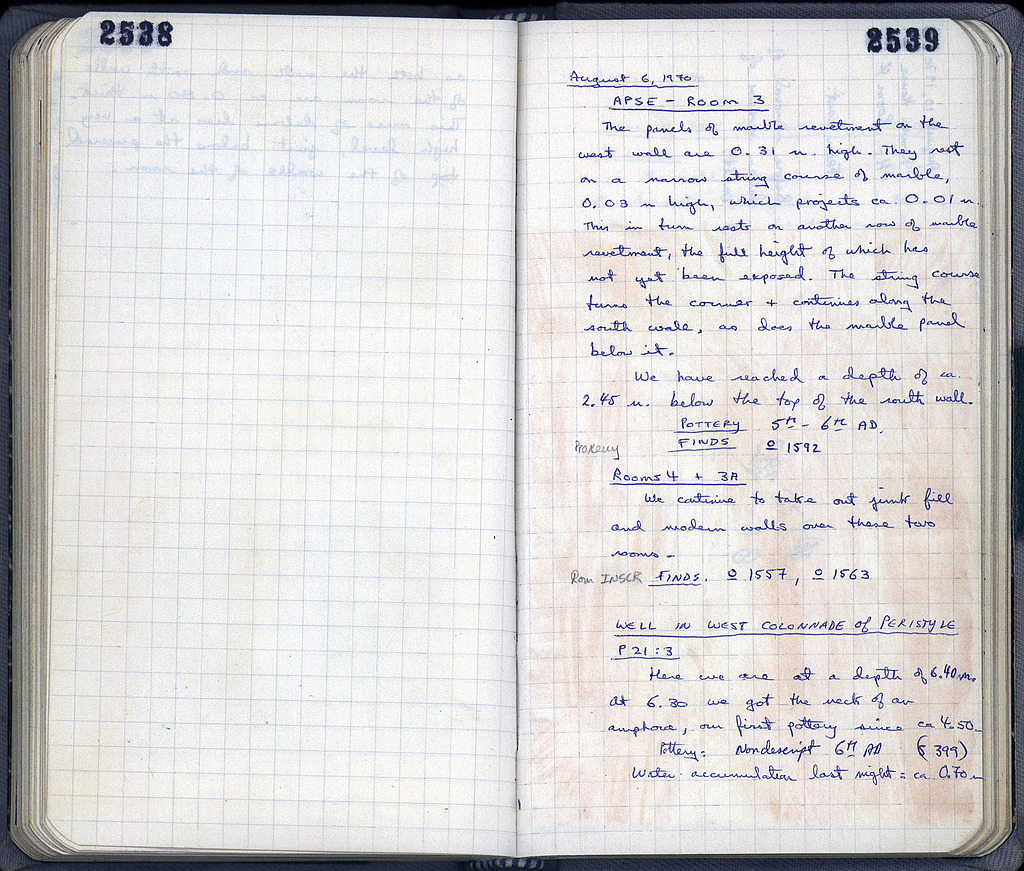 2538
2539
August 6, 1970
APSE - ROOM 3
The panels of marble revetment on the
west wall are 0.31 m. high. They rest
on a narrow string course of marble,
0.03 m high, which projects ca. 0.01 m.
This in turn rests on another row of marble
revetment, the full height of which has
not yet been exposed. The string course
turns the corner + continues along the
south wall, as does the marble panel
below it.
We have reached a depth of ca.
2.45 m. below the top of the south wall.
POTTERY 5th - 6th AD.
Proxeny FINDS O 1592
Rooms 4 + 3A
We continue to take out junk fill
and modern walls over these two
rooms -
Rom INSCR FINDS. O 1557, O 1563
WELL IN WEST COLONNADE of PERISTYLE
P 21:3
Here we are at a depth of 6.40 m.
At 6.30 we got the neck of an
amphora, our first pottery since ca 4.50.
Pottery: Nondescript 6th AD (399)
Water accumulation last night = ca 0.70 m